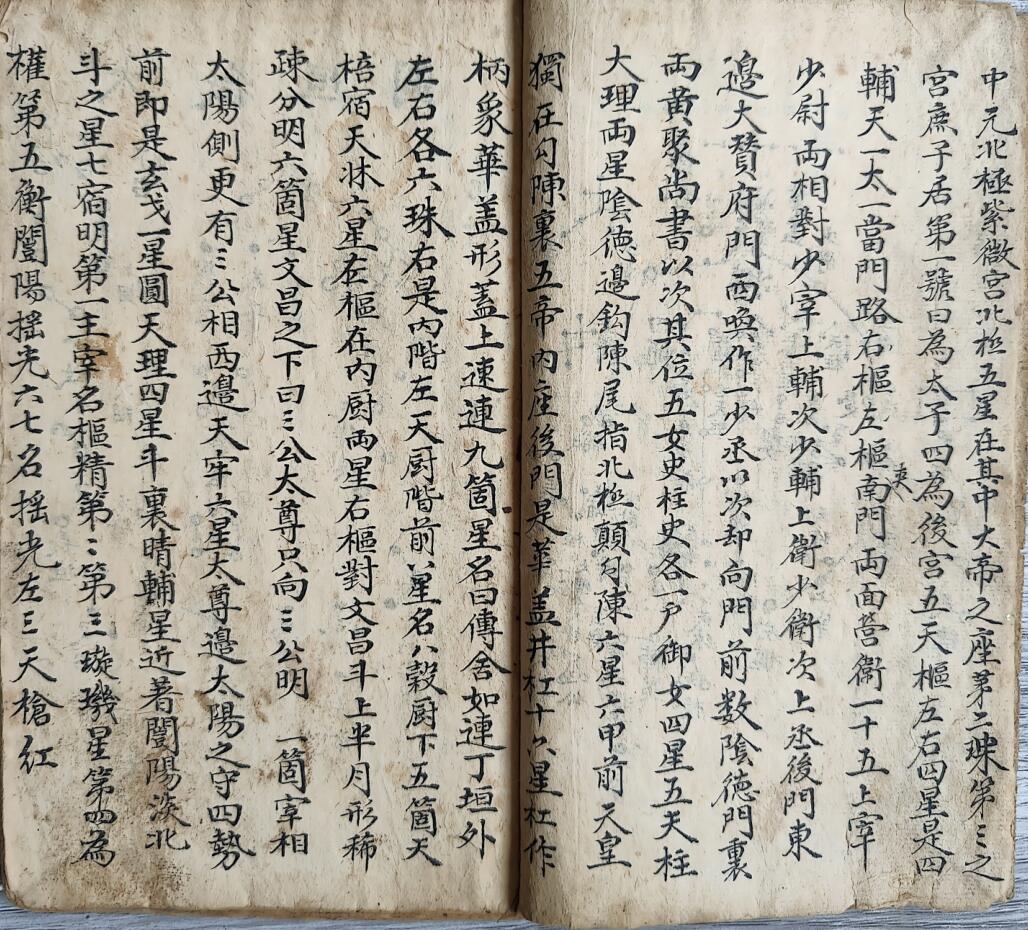 中元北極紫微宮北極五星在其中大帝之座第二珠第三之
宮庶子居第一號曰為太子四為後宮五天樞左右四星是四
輔天一太一當門路右樞左樞南門両面營衛一十五上宰
夾
少尉両相對少宰上輔次少輔上衛少衛次上丞後門東
邉大賛府門西喚作一少丞以次却向門前数陰德門裏
両黄聚尚書以次其位五女史柱史各一户御女四星五天柱
大理両星陰德邊鈎陳尾指北極顛勾陳六星六甲前天皇
獨在勾陳裏五帝內座後門是華盖并杠十六星杠作
柄象華盖形蓋上連連九箇星名曰傳舍如連丁垣外
左右各六珠右是內階左天厨階前八星名八糓厨下五箇天
棓宿天牀六星左樞在內厨両星右樞對文昌斗上半月形稀
疎分明六箇星文昌之下曰三公太尊只向三公明 一箇宰相
太陽側更有三公相西邉天牢六星太尊邉太陽之守四勢
前即是玄戈一星圓天理四星斗裏晴輔星近著闓陽淡北
斗之星七宿明第一主宰名樞精第二第三璇璣星第四為
權第五衡闓陽揺光六七名揺光左三天槍紅